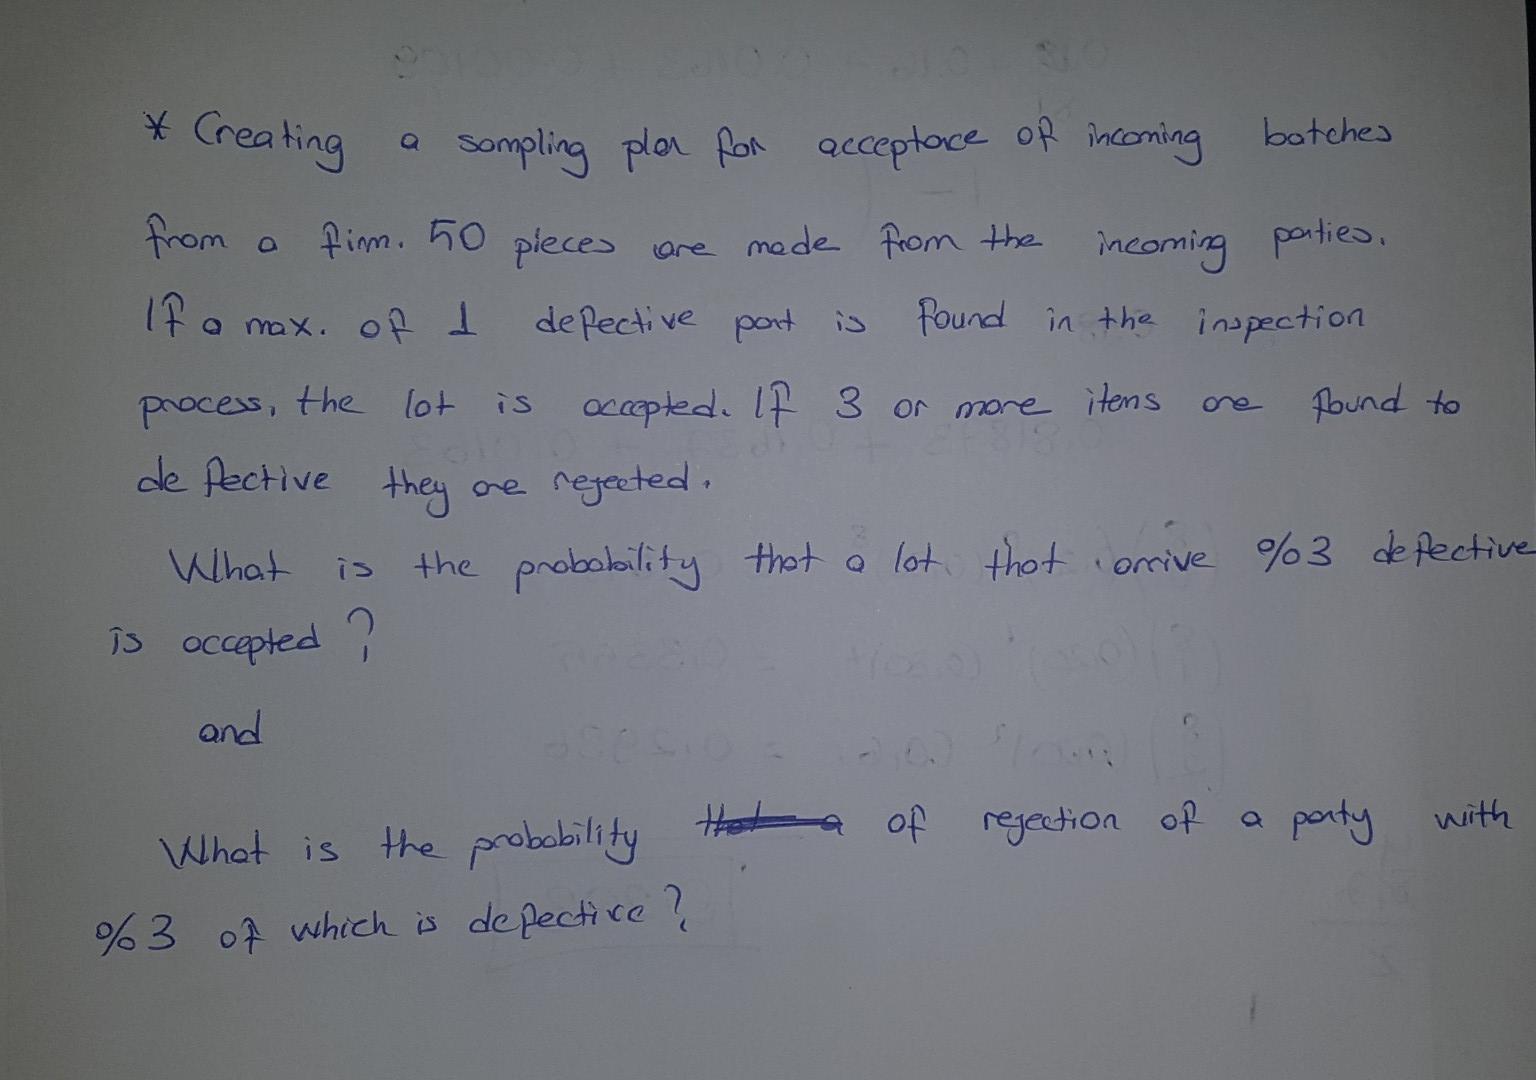 * Creating a sampling plan for acceptance of incoming batches
from a firm. 50 pieces are made from the incoming parties.
If a max. of 1 defective part is found in the inspection
process, the lot is accepted. If 3 or more items are found to
defective they are rejected.
What is the probability that a lot that arrive %3 defective
is accepted?
and
What is the probability of rejection of a party with
%3 of which is defective?